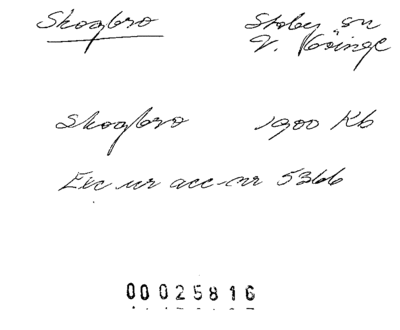 Skogbro
Stoby sn
V. Göinge
Skogbro 1900 Kb
Exc ur acc-nr 5366
00025816